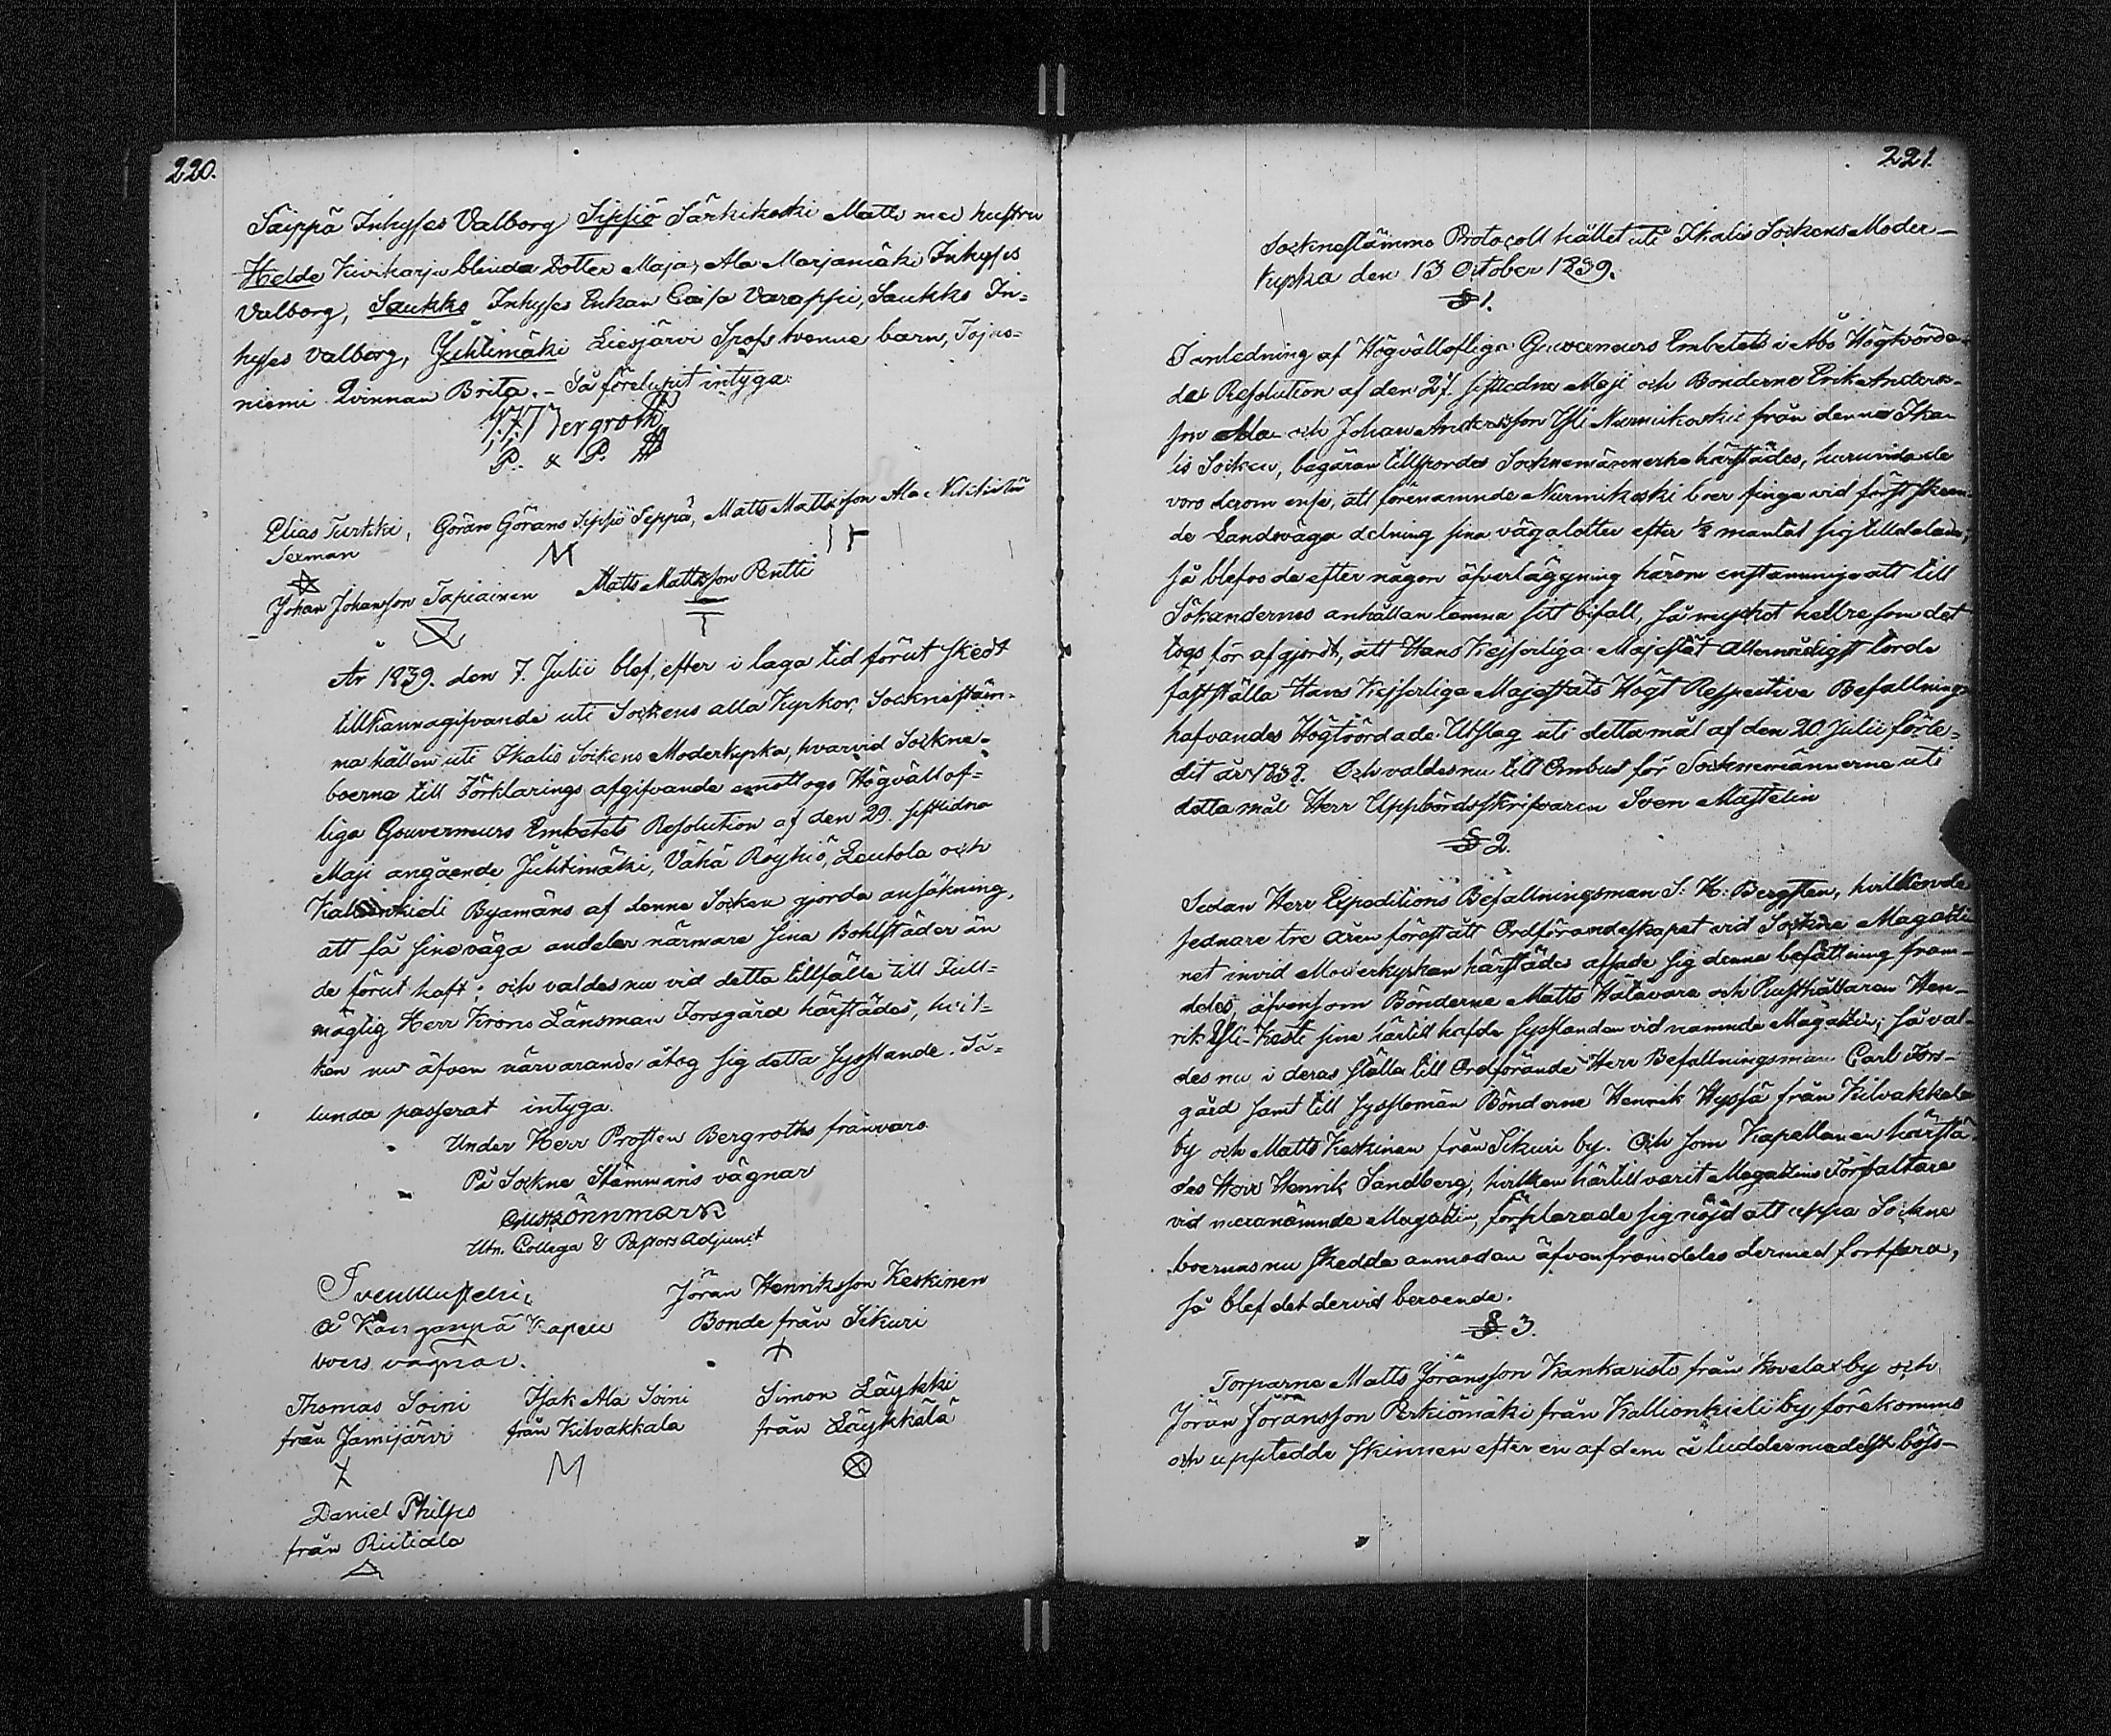 220.
Säippä Inhyses Valborg Sipsiö Särkikoski Matts med hustru
Heldo Kivikarju blinda Dotter Maja, Ala Marjamäki Inhyses
Valborg, Saukko Inhyses Enkan Caisa Varappi, Saukko In-
hyses Valborg, Juhtimäki Liesjärvi Spofs tvenne barn, Tojas-
niemi Qvinnan Brita. - Så förelupit intyga:
Bergroth
P. & P.
Elias Turkki, Göran Görans Sipsiö Seppä, Matts Mattsson Ala
Sexman
Johan Johansson Tapiainen Matts Mattsson Pentti
År 1839. den 7. Julii blef, efter i laga tid förut skedt
tillkännagifvande uti Sockens alla Kyrkor, Socknestäm-
ma hållen uti Ikalis Sockens Moderkyrka, hvarvid Sockne-
boerne till Förklarings afgifvande emottogo Högvällof-
liga Gouverneurs Embetets Resolution af den 29. sistlidne
Maji angående Juhtimäki, Vähä Röyhiö, Lautola och
Kallionkieli Byamäns af denne Socken gjorda ansökning,
att få sine väga andelar närmare sina Bohlstäder än
de förut haft; och valdes nu vid detta tillfälle till Full-
mägtig Herr Krono Länsman Forsgård härstädes, hvil-
ken nu äfven närvarande åtog sig detta Sysslande. Så-
lunda passerat intyga.
Under Herr Prosten Bergroths frånvaro
På Sockne Stämmans vägnar
Gust Rönnmark
Utn. Collega V Pastors Adjunct
Sven Mastelin
å Kangaspä Kapell
boers vägnar.
Jöran Henriksson Keskinen
Bonde från Sikuri
Thomas Soini Isak Ala Soini Simon Läykki
från Jämijärvi från Kilvakkala från Läykkälä
Daniel Philps
från Riitiala
221.
Socknestämmo Protocoll hållet uti Ikalis Sockens Moder-
kyrka den 13 October 1839.
§ 1.
I anledning af Högvälloflige Gouverneurs Embetets i Åbo Högtvörda-
des Resolution af den 27. sistledne Maji och Bonderne Erik Anders-
son Ala och Johan Andersson Yli Nurmikoskis från denne Ika-
lis Socken, begäran tillspordes Socknemännerne härstädes, huruvida de
voro derom ense, att förenämnde Nurmikoski boer finge vid först skeen-
de Landsväga delning sina vägalotter efter 1/3 mantal sig tilldelade;
så blefvo de efter någon öfverläggning härom enstämmige att till
Sökandernes anhållan lemna sitt bifall, så mycket hellre som det
togs för afgjordt, att Hans Kejserliga Majestät Allernådigst lärde
fastställa Hans Kejserliga Majestäts Högt Respective Befallnings
hafvandes Högtvördade Utslag uti detta mål af den 20. Julii förle-
dit år 1838. Och valdes nu till Ombud för Socknemännerne uti
detta mål Herr Uppbördsskrifvaren Sven Mastelin
§ 2.
Sedan Herr Expeditions Befallningsman S: K: Bergsten, hvilken de
sednare tre åren förestått Ordförandeskapet vid Sockne Magazi-
net invid Moderkyrkan härstädes afsade sig denna befattning fram-
deles, äfvensom Bönderne Matts Hätävara och Rusthållaren Hen-
rik Yli-Kesti sina härtill hafde Sysslanden vid nämnde Magazin; så val-
des nu i deras ställe till Ordförande Herr Befallningsman Carl Fors-
gård samt till Sysslomän Bönderne Henrik Hyssä från Kilvakkala
by och Matts Keskinen från Sikuri by. Och som Kapellanen härstä-
des Herr Henrik Sandberg, hvilken härtill varit Magazins Förvaltare
vid meranämnde Magazin, förklarade sig nöjd att uppa Sockne
boernas nu skedda anmodan äfven framdeles dermed fortfara,
så blef det dervid beroende.
§ 3.
Torparne Matts Jöransson Kankaisto från Kovelax by och
Jöran Jöransson Perkiömäki från Kallionkieli by, förekommo
och uppledde skinnen efter en af dem i ludder medelst böss-